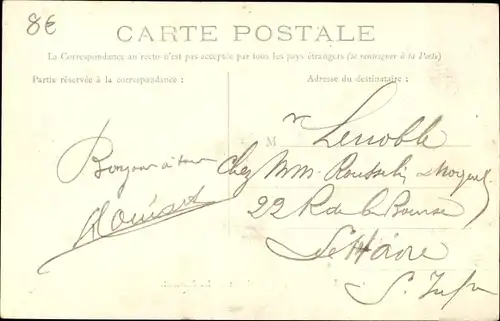 8€
CARTE POSTALE
La Correspondance au recto n'est pas acceptée par tous les pays étrangers (se renseigner à la Poste)
Partie réservée à la correspondance :
Adresse du destinataire :
M
r Lenoble
Bonjour à tous
chez MM. Rousselin &
22 R de la Bourse
Le Havre
S. Infre